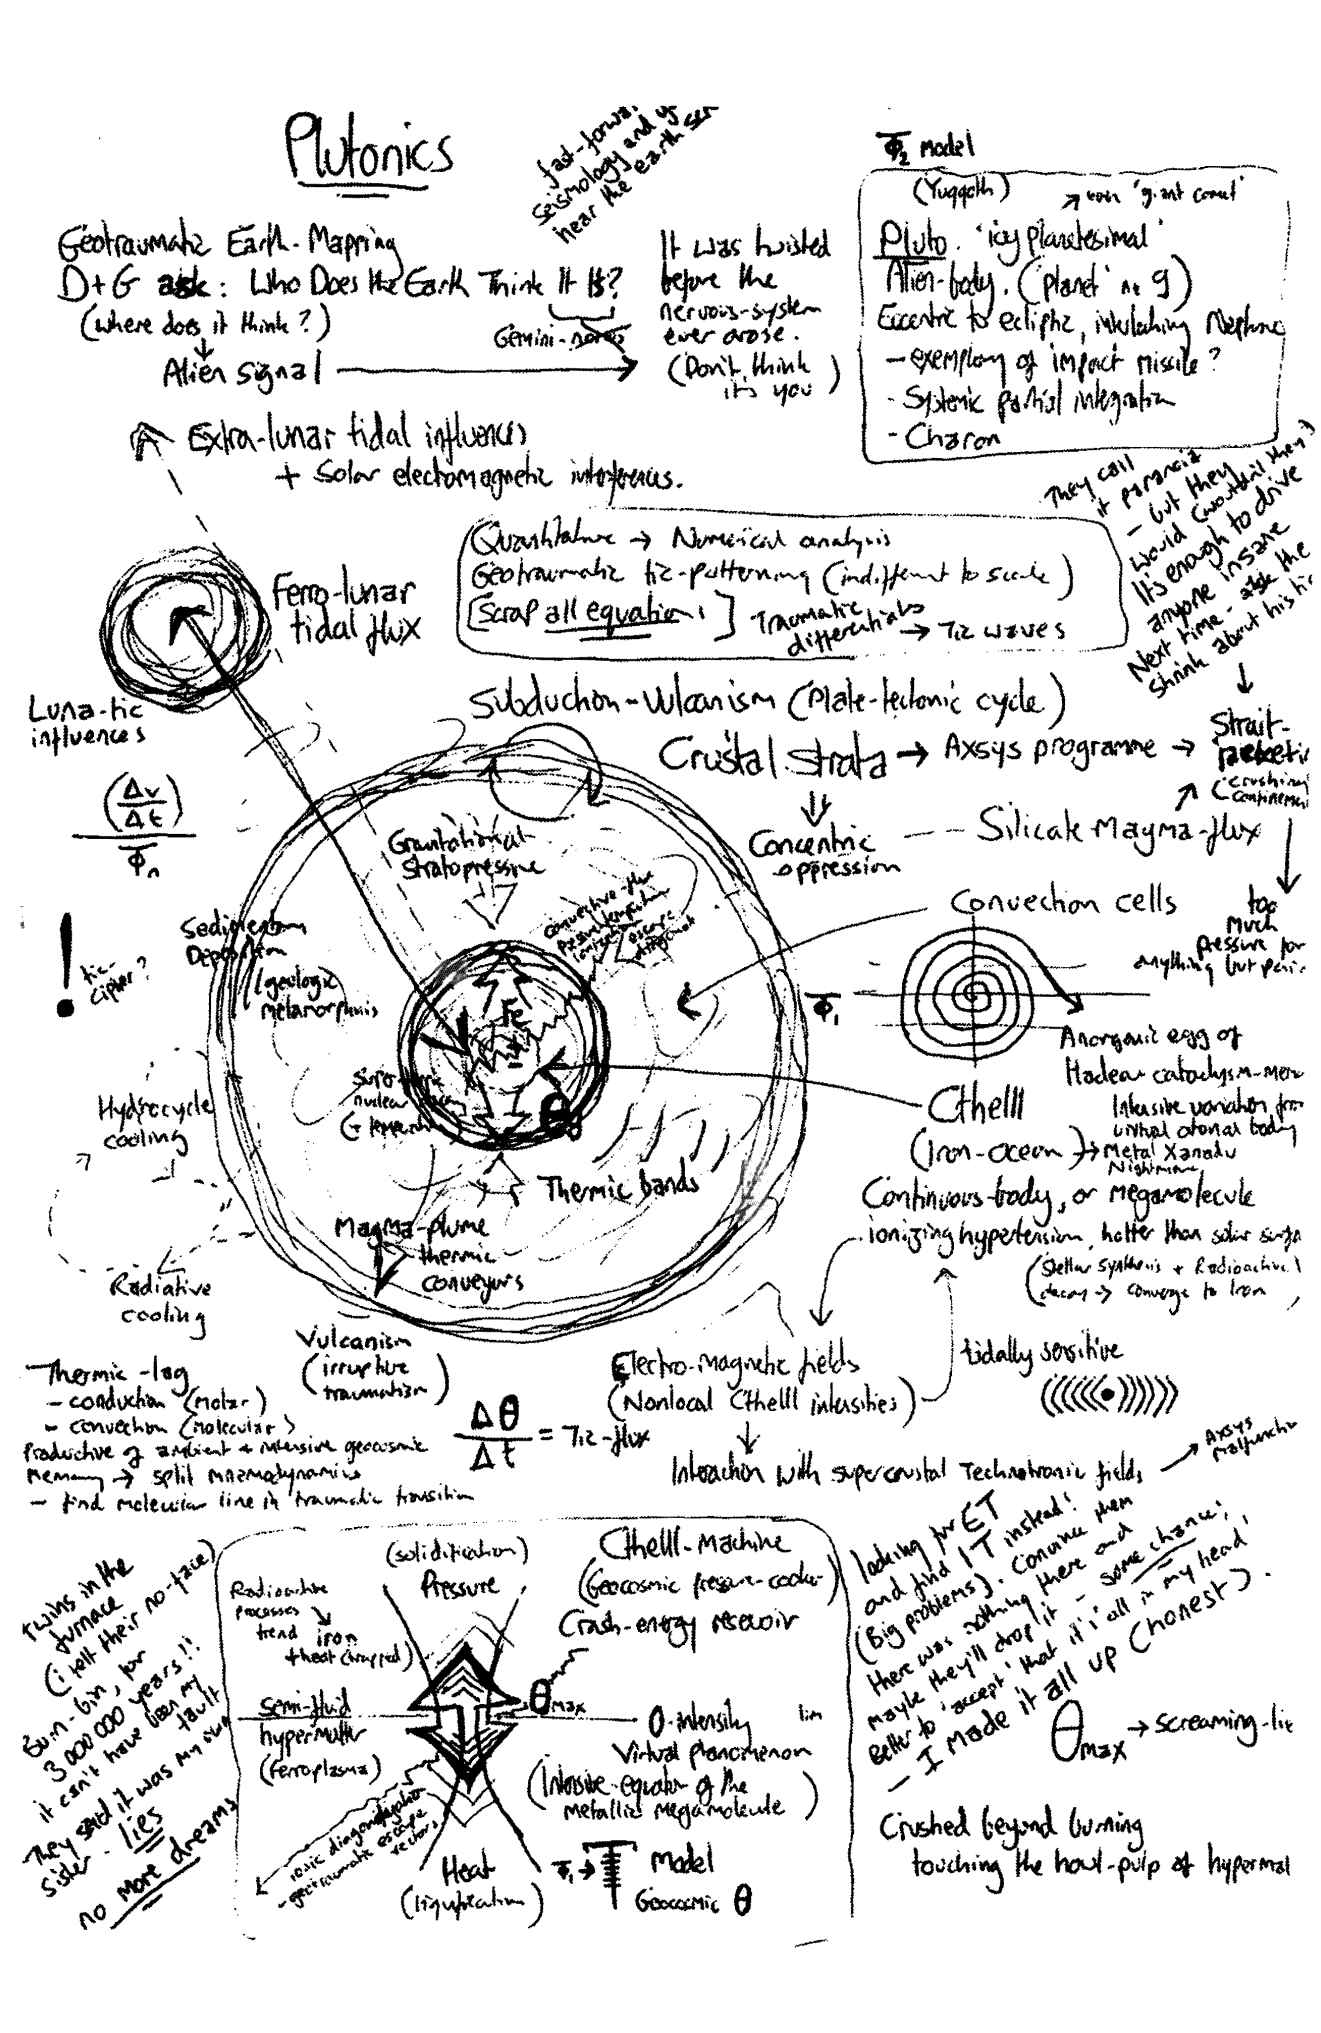 Plutonics
fast-forwa
seismology and y
hear the earth scr
Geotraumatic Earth-Mapping
D+G ask: Who Does the Earth Think It Is?
(where does it think?)
Gemini-
Alien signal
It was twisted
before the
nervous-system
ever arose.
(Don't think
it's you)
Φ2 model
(Yuggoth)
'giant comet'
Pluto. 'icy planetesimal'
Alien-body. ('planet' no 9)
Eccentric to ecliptic, interlocking Neptune
- exemplary of impact missile?
- Systemic partial integration
- Charon
Extra-lunar tidal influences
+ Solar electromagnetic interferences.
They call
it paranoia
- but they
would (wouldn't they?)
It's enough to drive
anyone insane
Next time - ask the
shrink about his tic
(Quantitative → Numerical analysis
Geotraumatic tic-patterning (indifferent to scale)
[Scrap all equations]
Traumatic
differentials
→ Tic waves
Ferro-lunar
tidal flux
Luna-tic
influences
(Δv/Δt)
Φn
Subduction-Vulcanism (Plate-tectonic cycle)
Crustal strata → Axsys programme → Strait-
(crushing
confinemen
Concentric
oppression
Silicate Magma-flux
Gravitational
stratopressure
Convection cells
too
much
pressure for
anything but pani
Sedimentary
Deposition
geologic
metamorphosis
!
tic-
cipher?
Fe
Φ1
Anorganic egg of
Hadean cataclysm-mem
Intensive variation from
virtual atonal body
Cthelll
(Iron-ocean) → Metal Xanadu
Nightmare
Hydrocycle
cooling
θ
Thermic bands
Continuous-body, or megamolecule
ionizing hypertension, hotter than solar surfa
(Stellar synthesis + Radioactive
decay → converge to Iron
Magma-plume
thermic
conveyors
Radiative
cooling
Vulcanism
(irruptive
traumatism)
Electro-magnetic fields
(Nonlocal Cthelll intensities)
tidally sensitive
((((((•))))))
Thermic-lag
- conduction (molar)
- convection (molecular)
Productive of ambient + intensive geocosmic
memory → split mnemodynamics
- find molecular line in traumatic transition
Δθ/Δt = Tic-flux
Interaction with supercrustal Technotronic fields
Axsys
malfunction
Twins in the
furnace
(i felt their no-face)
Burn-bin, for
3000000 years!!
it can't have been my
fault
They said it was my own
sister. lies
no more dreams
(solidification)
Pressure
Radioactive
processes
trend
iron
+ heat (trapped)
Cthelll-machine
(Geocosmic pressure-cooker)
Crash-energy reservoir
θmax
semi-fluid
hypermatter
(ferroplasma)
θ-intensity lim
Virtual phenomenon
(Intensive equator of the
metallic megamolecule)
ionic diagonalization
- geotraumatic escape
vectors
Heat
(liquifaction)
Φ1 →
Model
Geocosmic θ
looking for ET
and find IT instead!
(Big problems). Convince them
there was nothing there and
maybe they'll drop it - some chance!
Better to 'accept' that it's 'all in my head'
- I made it all up (honest).
θmax → screaming-li
Crushed beyond burning
touching the howl-pulp of hypermat